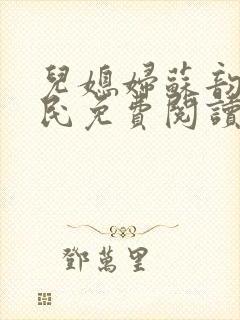 兒媳婦蘇韵
民免費閱讀
鄧萬里